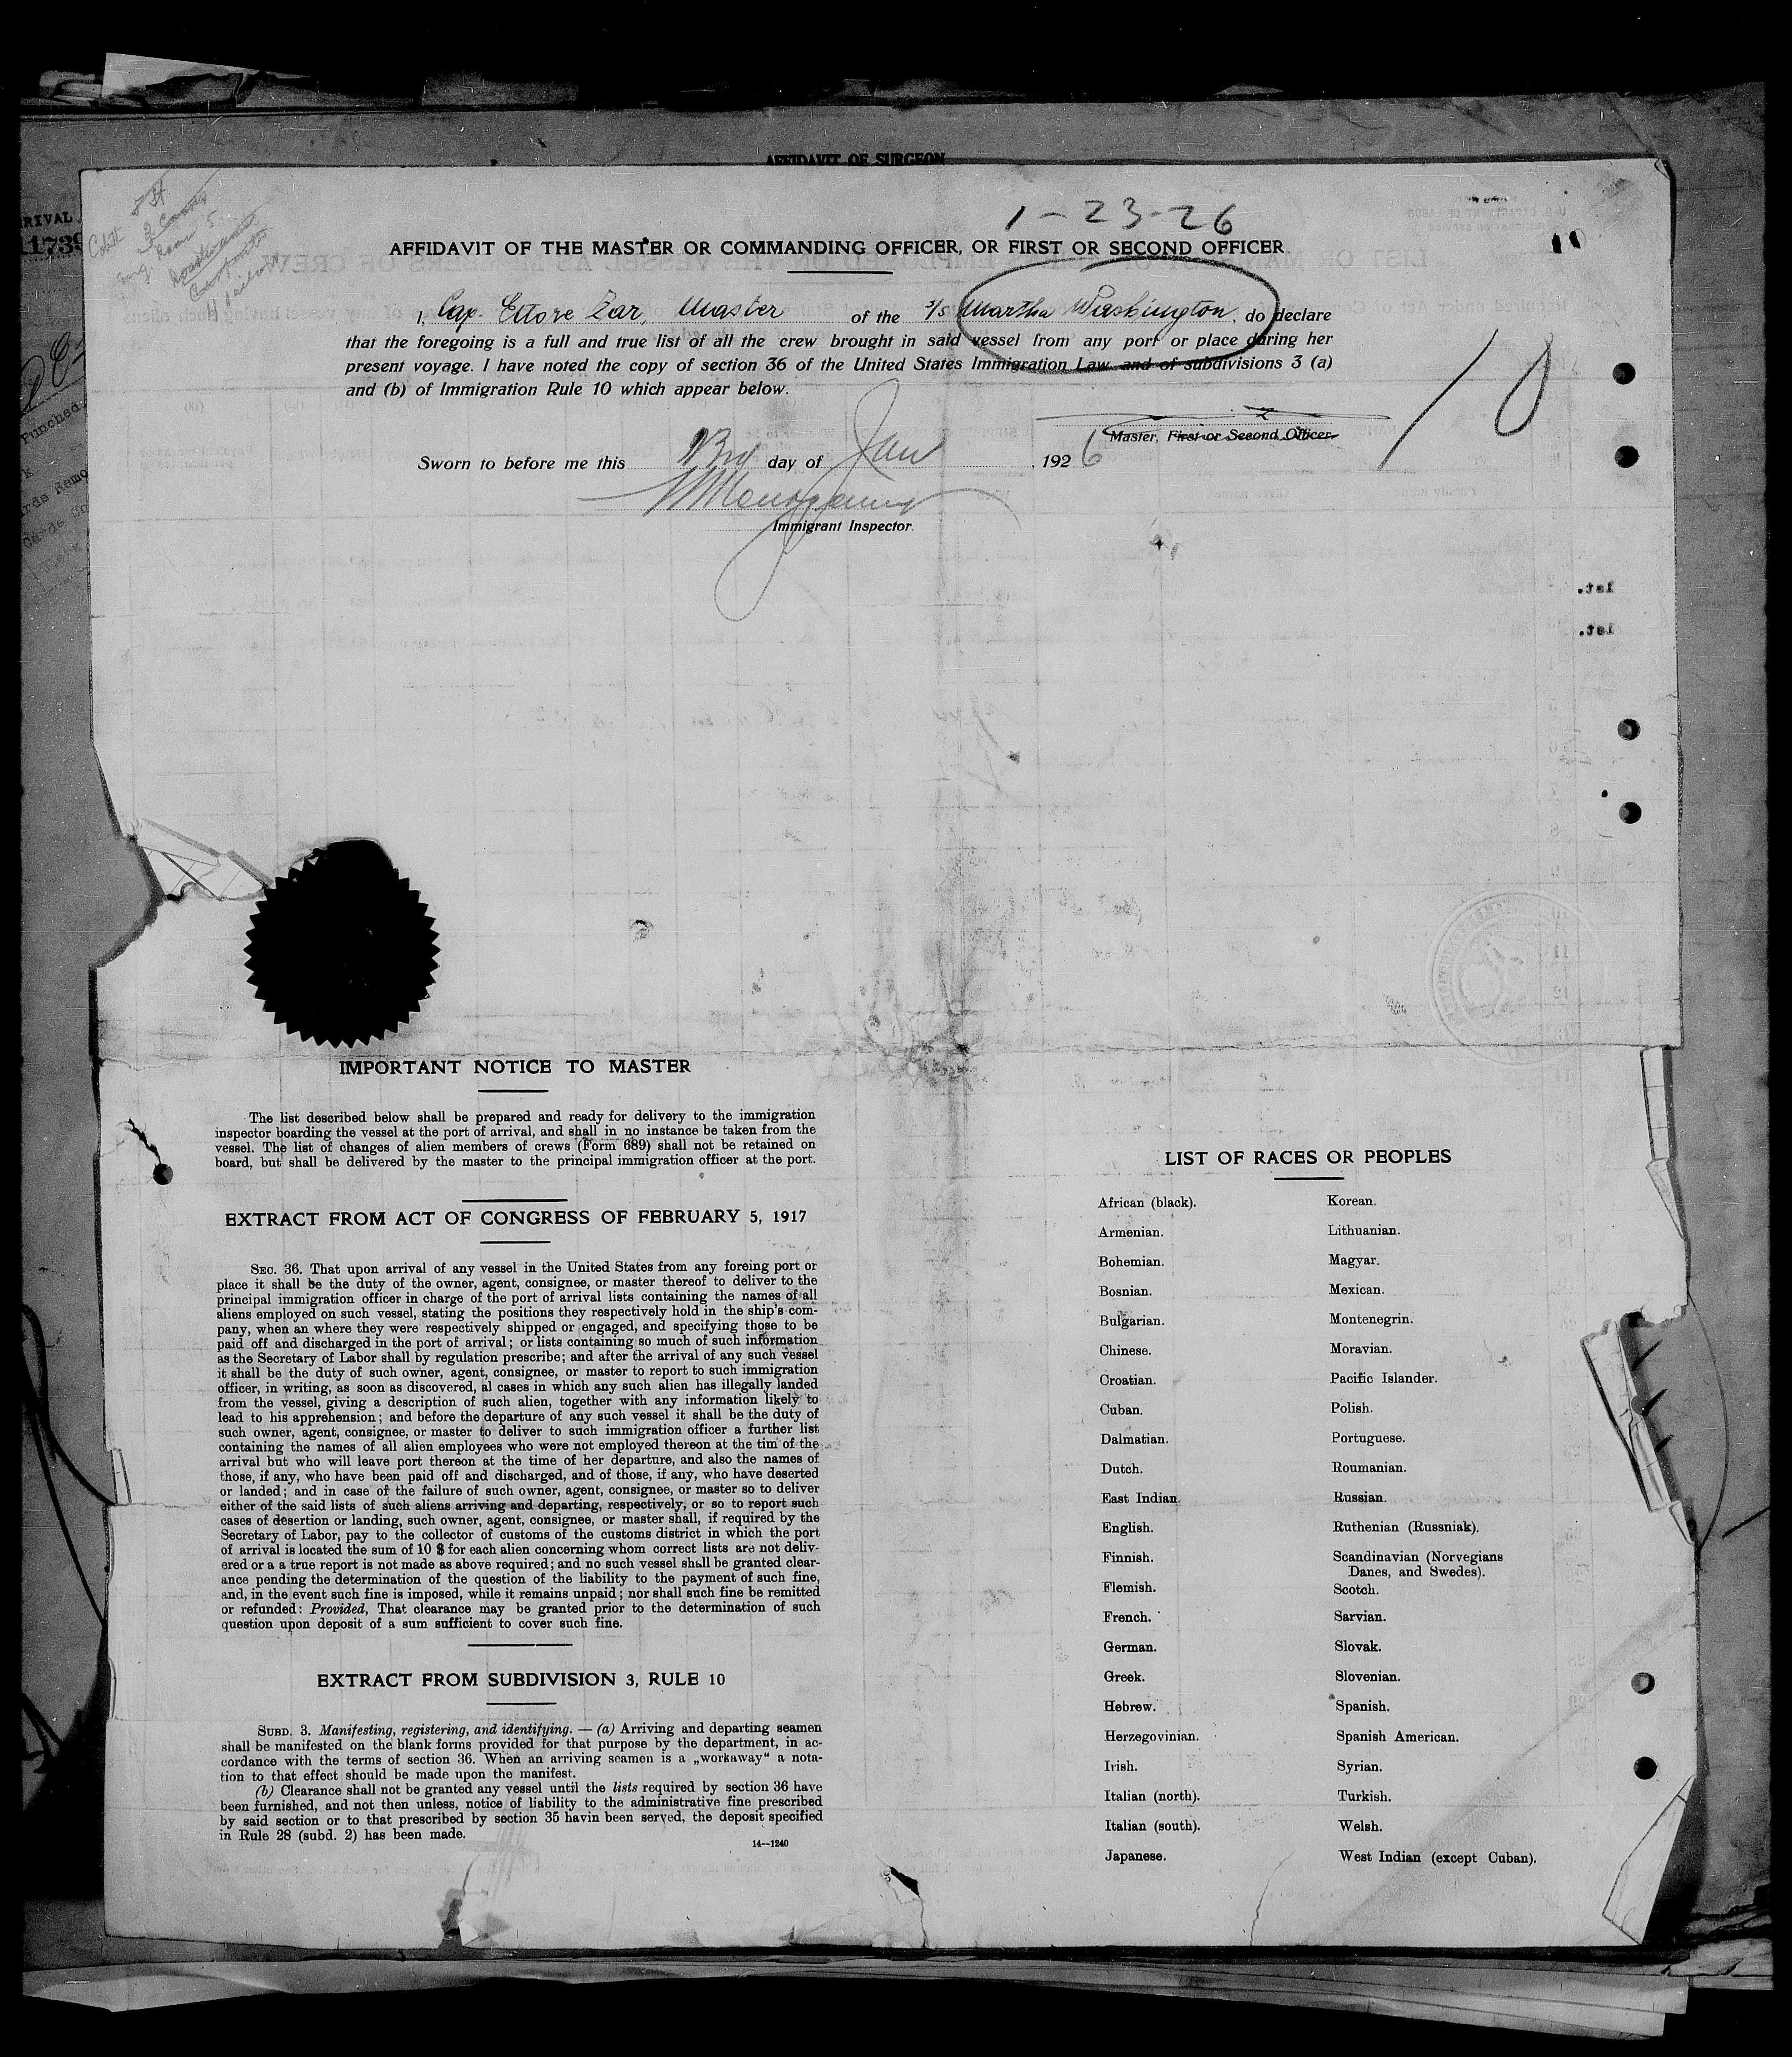 AFFIDAVIT OF SURGEON
RIVAL
1739
1-23-26
AFFIDAVIT OF THE MASTER OR COMMANDING OFFICER, OR FIRST OR SECOND OFFICER
I, Cap. Ettore Zar, Master of the S/S Martha Washington, do declare
that the foregoing is a full and true list of all the crew brought in said vessel from any port or place during her
present voyage. I have noted the copy of section 36 of the United States Immigration Law and of subdivisions 3 (a)
and (b) of Immigration Rule 10 which appear below.
10
Master, First or Second Officer.
Sworn to before me this 23rd day of Jan, 1926
Immigrant Inspector.
Punched
1st.
1st.
IMPORTANT NOTICE TO MASTER
The list described below shall be prepared and ready for delivery to the immigration
inspector boarding the vessel at the port of arrival, and shall in no instance be taken from the
vessel. The list of changes of alien members of crews (Form 689) shall not be retained on
board, but shall be delivered by the master to the principal immigration officer at the port.
EXTRACT FROM ACT OF CONGRESS OF FEBRUARY 5, 1917
SEC. 36. That upon arrival of any vessel in the United States from any foreing port or
place it shall be the duty of the owner, agent, consignee, or master thereof to deliver to the
principal immigration officer in charge of the port of arrival lists containing the names of all
aliens employed on such vessel, stating the positions they respectively hold in the ship's com-
pany, when an where they were respectively shipped or engaged, and specifying those to be
paid off and discharged in the port of arrival; or lists containing so much of such information
as the Secretary of Labor shall by regulation prescribe; and after the arrival of any such vessel
it shall be the duty of such owner, agent, consignee, or master to report to such immigration
officer, in writing, as soon as discovered, al cases in which any such alien has illegally landed
from the vessel, giving a description of such alien, together with any information likely to
lead to his apprehension; and before the departure of any such vessel it shall be the duty of
such owner, agent, consignee, or master to deliver to such immigration officer a further list
containing the names of all alien employees who were not employed thereon at the tim of the
arrival but who will leave port thereon at the time of her departure, and also the names of
those, if any, who have been paid off and discharged, and of those, if any, who have deserted
or landed; and in case of the failure of such owner, agent, consignee, or master so to deliver
either of the said lists of such aliens arriving and departing, respectively, or so to report such
cases of desertion or landing, such owner, agent, consignee, or master shall, if required by the
Secretary of Labor, pay to the collector of customs of the customs district in which the port
of arrival is located the sum of 10 $ for each alien concerning whom correct lists are not deliv-
ered or a a true report is not made as above required; and no such vessel shall be granted clear-
ance pending the determination of the question of the liability to the payment of such fine,
and, in the event such fine is imposed, while it remains unpaid; nor shall such fine be remitted
or refunded: Provided, That clearance may be granted prior to the determination of such
question upon deposit of a sum sufficient to cover such fine.
EXTRACT FROM SUBDIVISION 3, RULE 10
SUBD. 3. Manifesting, registering, and identifying. — (a) Arriving and departing seamen
shall be manifested on the blank forms provided for that purpose by the department, in ac-
cordance with the terms of section 36. When an arriving seamen is a „workaway“ a nota-
tion to that effect should be made upon the manifest.
(b) Clearance shall not be granted any vessel until the lists required by section 36 have
been furnished, and not then unless, notice of liability to the administrative fine prescribed
by said section or to that prescribed by section 35 havin been served, the deposit specified
in Rule 28 (subd. 2) has been made.
14—1240
LIST OF RACES OR PEOPLES
African (black).
Armenian.
Bohemian.
Bosnian.
Bulgarian.
Chinese.
Croatian.
Cuban.
Dalmatian.
Dutch.
East Indian.
English.
Finnish.
Flemish.
French.
German.
Greek.
Hebrew.
Herzegovinian.
Irish.
Italian (north).
Italian (south).
Japanese.
Korean.
Lithuanian.
Magyar.
Mexican.
Montenegrin.
Moravian.
Pacific Islander.
Polish.
Portuguese.
Roumanian.
Russian.
Ruthenian (Russniak).
Scandinavian (Norvegians
Danes, and Swedes).
Scotch.
Sarvian.
Slovak.
Slovenian.
Spanish.
Spanish American.
Syrian.
Turkish.
Welsh.
West Indian (except Cuban).